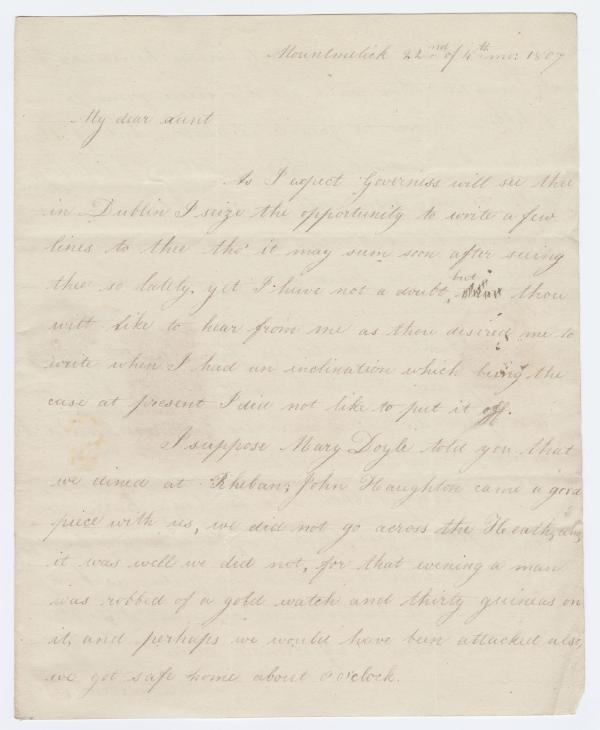 Mountmelick 22nd of 4th mo: 1807
My dear aunt
As I expect Governess will see thee
in Dublin I seize the opportunity to write a few
lines to thee tho' it may seem soon after seeing
thee so lately, yet I have not a doubt but thou
will like to hear from me as thou desired me to
write when I had an inclination which being the
case at present I did not like to put it off.
I suppose Mary Doyle told you that
we dined at Rheban; John Haughton came a good
piece with us, we did not go across the Heath,
it was well we did not, for that evening a man
was robbed of a gold watch and thirty guineas on
it, and perhaps we would have been attacked also,
we got safe home about o'clock.